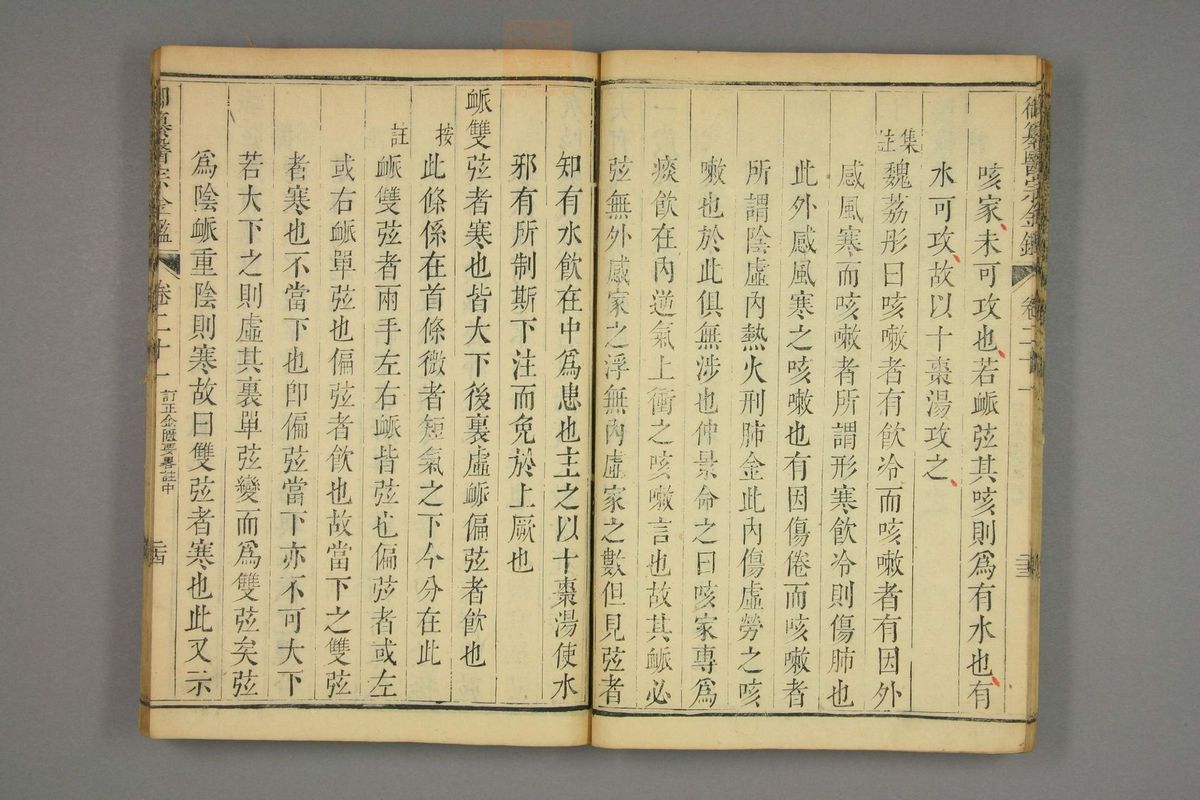 御纂醫宗金鑑 卷二十一 二十三
咳家未可攻也若衇弦其咳則爲有水也有
水可攻故以十棗湯攻之
集註 魏荔彤曰咳嗽者有飲冷而咳嗽者有因外
感風寒而咳嗽者所謂形寒飲冷則傷肺也
此外感風寒之咳嗽也有因傷倦而咳嗽者
所謂陰虛內熱火刑肺金此內傷虛勞之咳
嗽也於此俱無涉也仲景命之曰咳家專爲
痰飲在內逆氣上衝之咳嗽言也故其衇必
弦無外感家之浮無內虛家之數但見弦者
知有水飲在中爲患也主之以十棗湯使水
邪有所制斯下注而免於上厥也
衇雙弦者寒也皆大下後裏虛衇偏弦者飲也
按 此條係在首條微者短氣之下今分在此
註 衇雙弦者兩手左右衇皆弦也偏弦者或左
或右衇單弦也偏弦者飲也故當下之雙弦
者寒也不當下也卽偏弦當下亦不可大下
若大下之則虛其裏單弦變而爲雙弦矣弦
爲陰衇重陰則寒故曰雙弦者寒也此又示
御纂醫宗金鑑 卷二十一 訂正金匱要畧註中 二十四